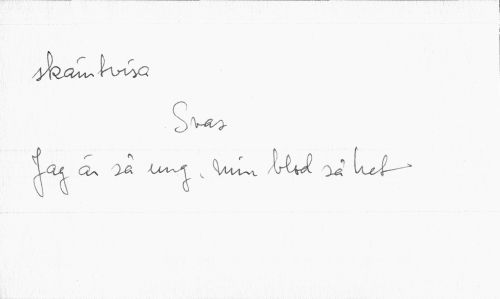 skämtvisa
Svar
Jag är så ung, min blod så het